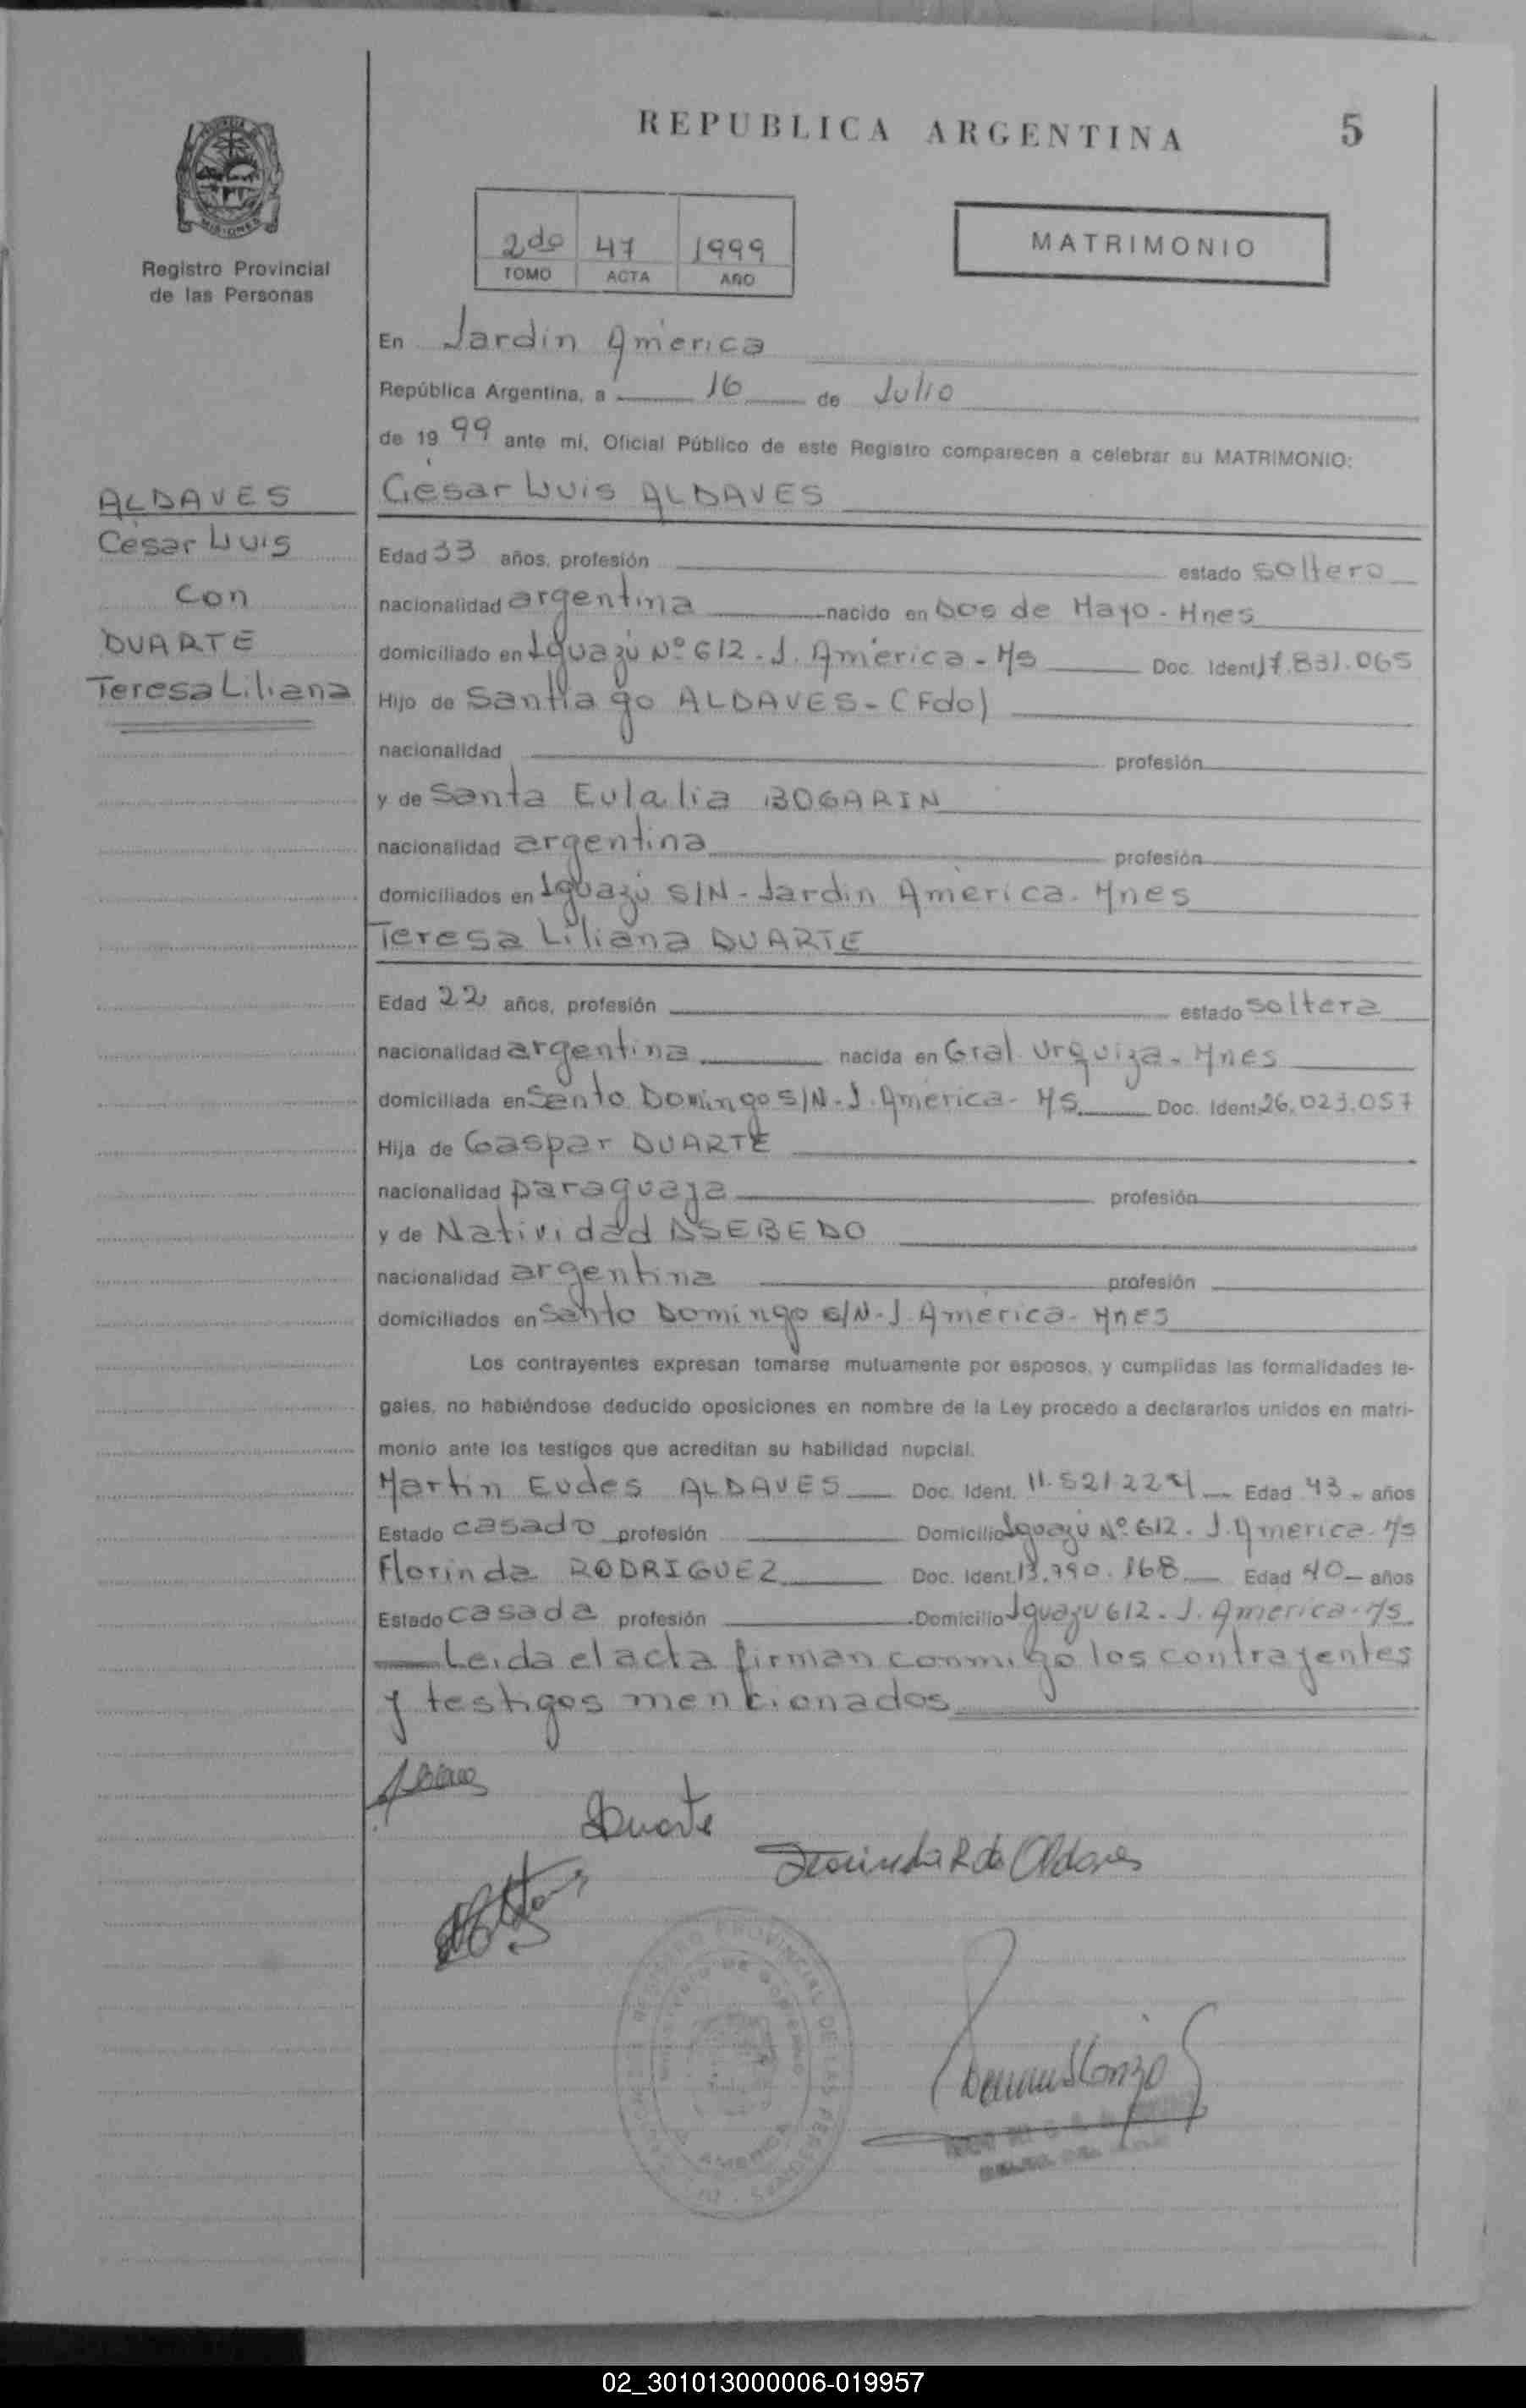 REPUBLICA ARGENTINA
5
Registro Provincial
de las Personas
2do 47 1999
TOMO ACTA AÑO
MATRIMONIO
En Jardin América
República Argentina, a 16 de Julio
de 1999 ante mí, Oficial Público de este Registro comparecen a celebrar su MATRIMONIO:
César Luis ALDAVES
ALDAVES
César Luis
Con
DUARTE
Teresa Liliana
Edad 33 años, profesión estado soltero
nacionalidad argentina nacido en Dos de Mayo - Mnes
domiciliado en Iguazú Nº 612 - J. América - Ms Doc. Ident. 17.831.065
Hijo de Santiago ALDAVES - (Fdo)
nacionalidad profesión
y de Santa Eulalia BOGARIN
nacionalidad argentina profesión
domiciliados en Iguazú S/N - Jardin América - Mnes
Teresa Liliana DUARTE
Edad 22 años, profesión estado soltera
nacionalidad argentina nacida en Gral. Urquiza - Mnes
domiciliada en Santo Domingo S/N - J. América - Ms Doc. Ident. 26.023.057
Hija de Gaspar DUARTE
nacionalidad paraguaya profesión
y de Natividad ASEBEDO
nacionalidad argentina profesión
domiciliados en Santo Domingo S/N - J. América - Mnes
Los contrayentes expresan tomarse mutuamente por esposos, y cumplidas las formalidades le-
gales, no habiéndose deducido oposiciones en nombre de la Ley procedo a declararlos unidos en matri-
monio ante los testigos que acreditan su habilidad nupcial.
Martín Eudes ALDAVES Doc. Ident. 11.521.224 Edad 43 - años
Estado casado profesión Domicilio Iguazú Nº 612 - J. América - Ms
Florinda RODRIGUEZ Doc. Ident. 13.990.168 Edad 40 - años
Estado casada profesión Domicilio Iguazu 612 - J. América - Ms
Leida el acta firman conmigo los contrayentes
y testigos mencionados
Duarte
Florinda R de Aldaves
REGISTRO PROVINCIAL DE LAS PERSONAS
02_301013000006-019957